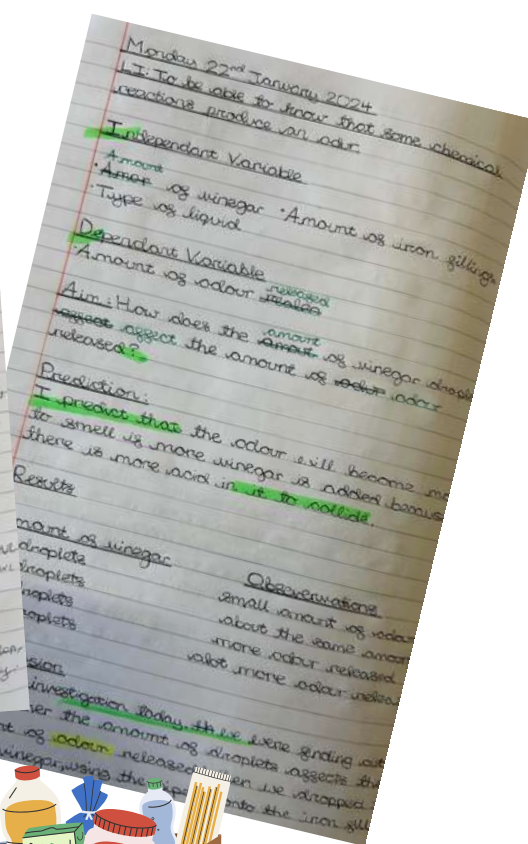 Monday 22nd January 2024
L.I: To be able to know that some chemical
reactions produce an odur.
Independant Variable
Amount
· Amor of vinegar · Amount of iron fillings
· Type of liquid
Dependant Variable
· Amount of odour released
Aim: How does the amount of vinegar drople
effect affect the amount of odour odour
released?
Prediction:
I predict that the odour will become mo
to smell is more vinegar is added becaus
there is more acid in it to collide.
Results
mount of vinegar
Obseverations
droplets
small amount of odour
droplets
about the same amou
droplets
more odour released
oplets
alot more odour relea
sion
investigation today, we were finding out
er the amount of droplets affects the
nt of odour released when we dropped
vinegar, using the onto the iron fill